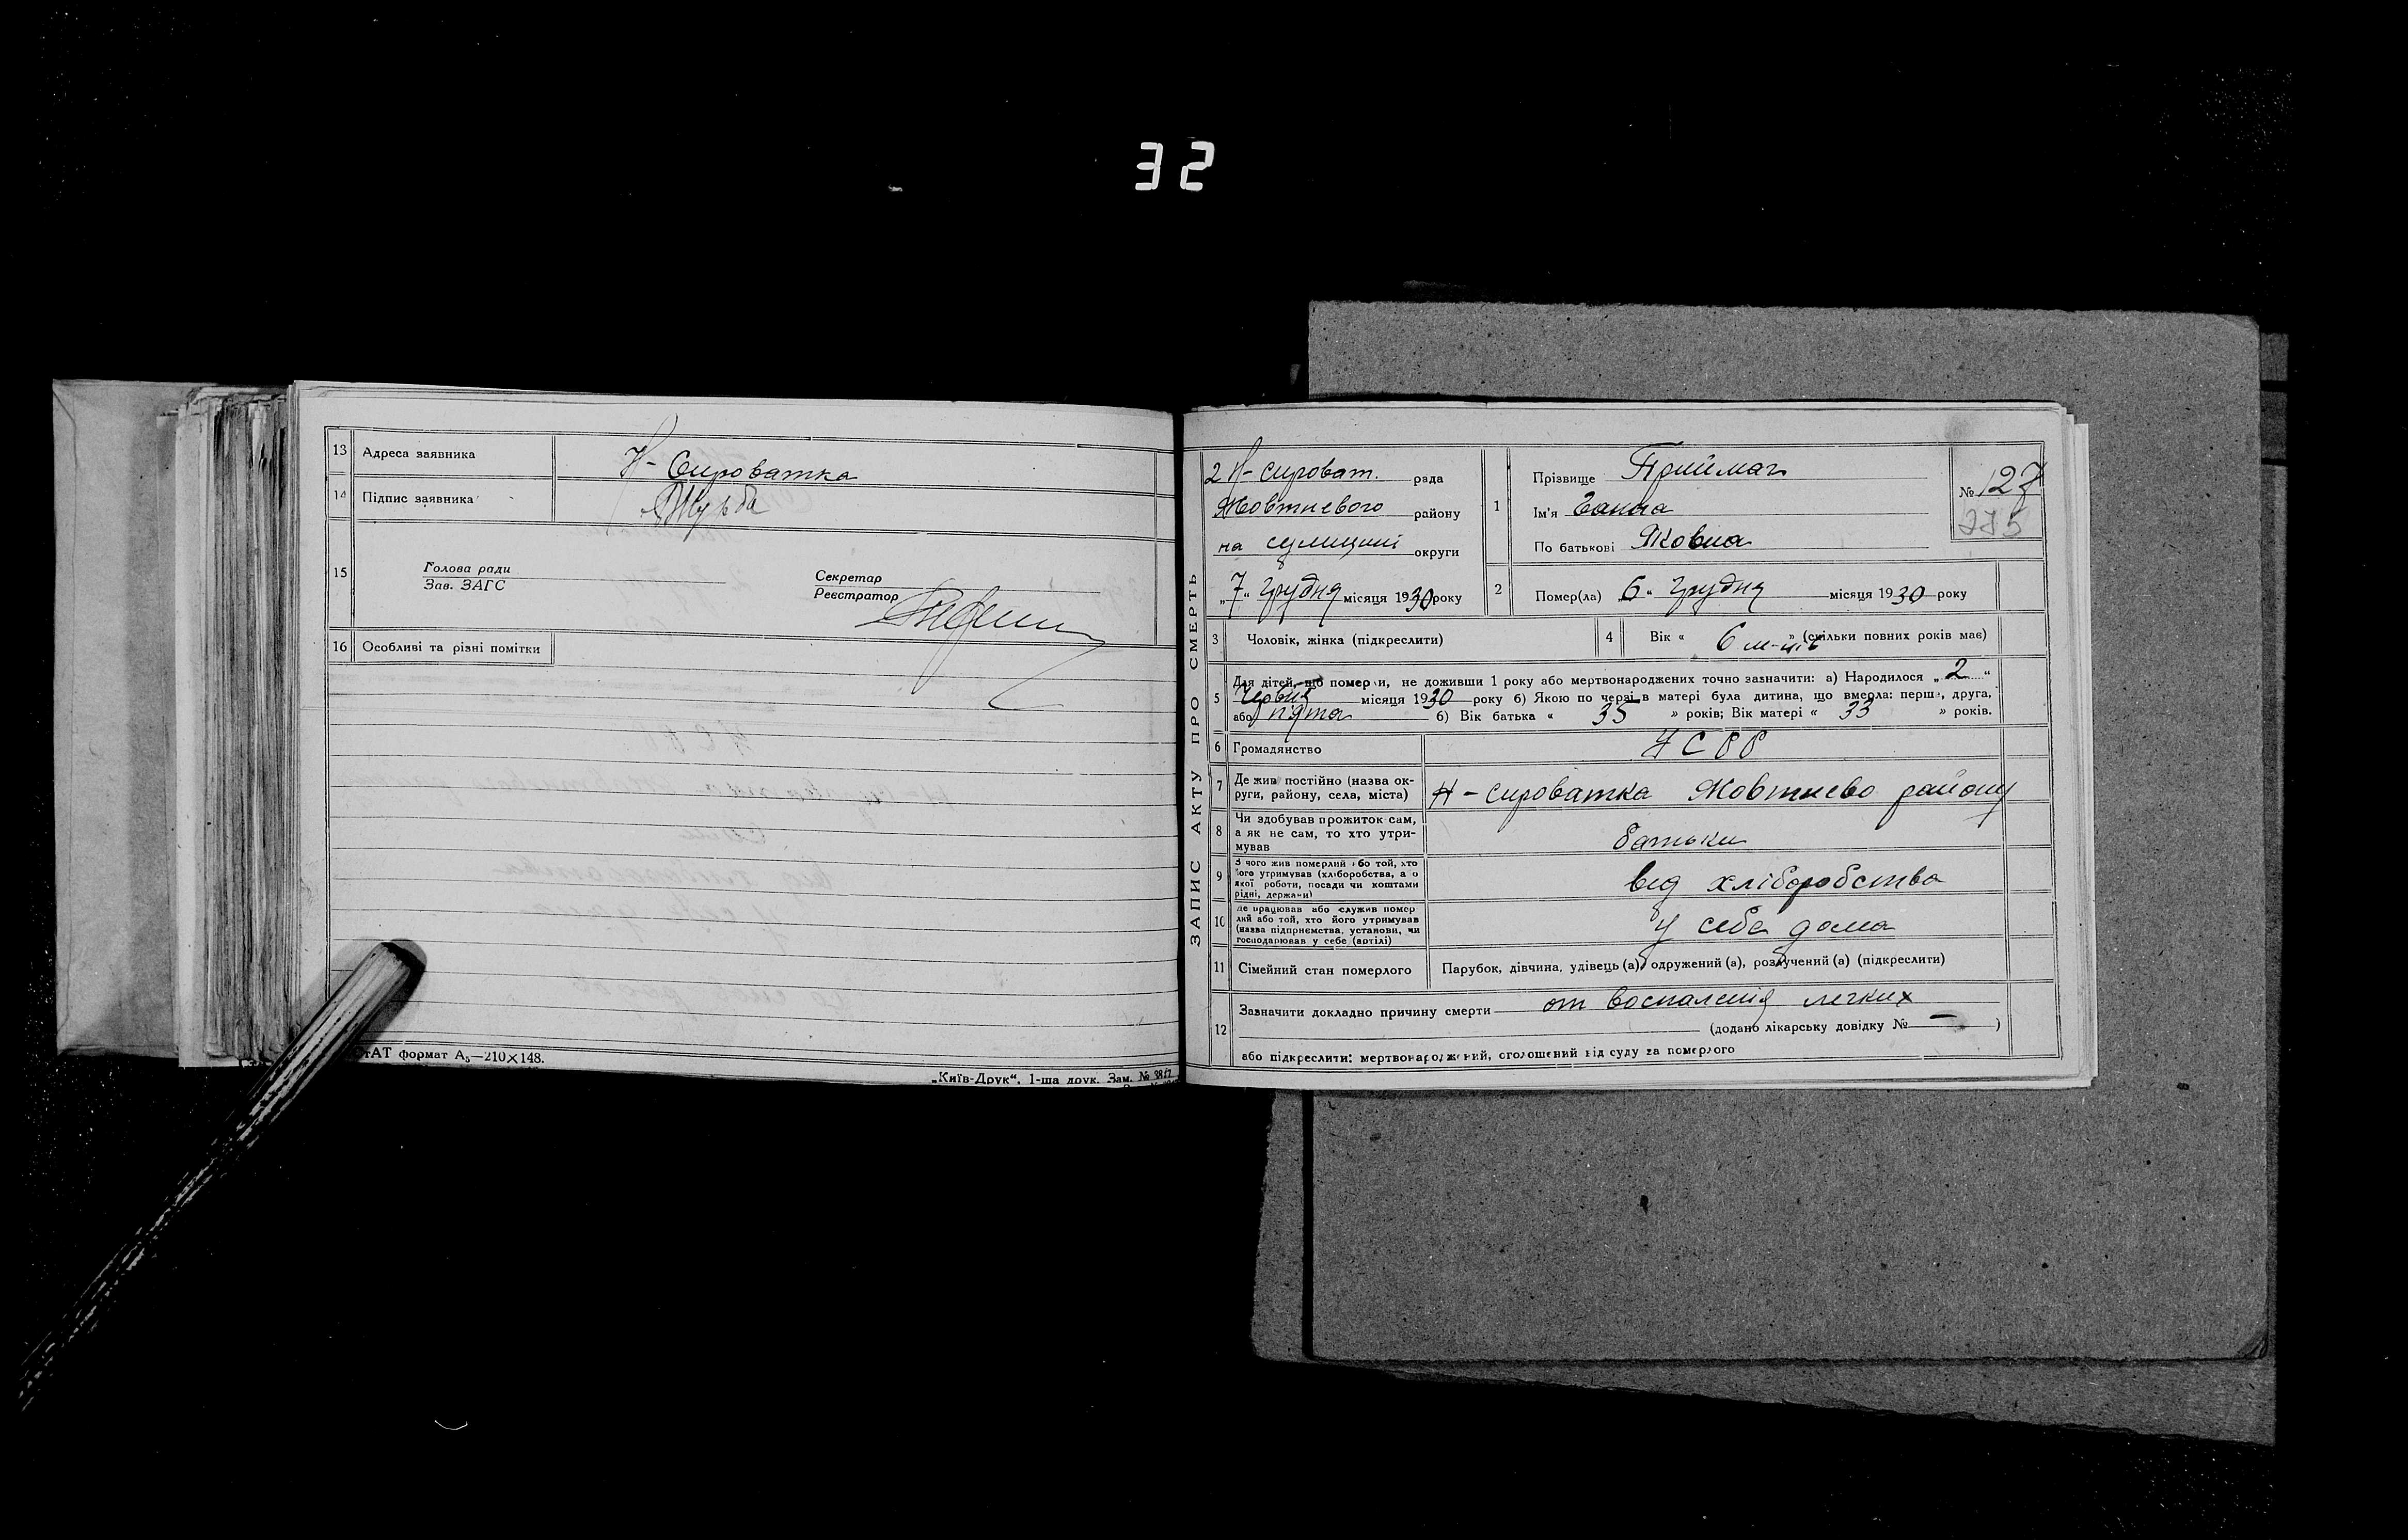 32
13 Адреса заявника Н-Сироватка
14 Підпис заявника Журба
15 Голова ради
Зав. ЗАГС
Секретар
Реєстратор
16 Особливі та різні помітки
формат А5—210×148.
„Київ-Друк“. 1-ша друк. Зам. №
ЗАПИС АКТУ ПРО СМЕРТЬ
2 Н-Сироват. рада
Жовтневого району
на Сумщині округи
„7“ грудня місяця 1930 року
1 Прізвище Приймач
Ім'я Ганна
По батькові Яковна
№ 127
275
2 Помер(ла) „6“ грудня місяця 1930 року
3 Чоловік, жінка (підкреслити)
4 Вік « 6 м-ців » (скільки повних років має)
5 Для дітей, що померли, не доживши 1 року або мертвонароджених точно зазначити: а) Народилося „2“
Червня місяця 1930 року б) Якою по черзі в матері була дитина, що вмерла: перша, друга,
або п'ята б) Вік батька « 35 » років; Вік матері « 33 » років.
6 Громадянство УСРР
7 Де жив постійно (назва ок-
руги, району, села, міста) Н-Сироватка Жовтнево району
8 Чи здобував прожиток сам,
а як не сам, то хто утри-
мував батьки
9 З чого жив померлий або той, хто
його утримував (хліборобства, а о
якої роботи, посади чи коштами
рідні, держави) від хліборобства
10 Де працював або служив помер
лий або той, хто його утримував
(назва підприємства, установи, чи
господарював у себе (артілі) у себе дома
11 Сімейний стан померлого Парубок, дівчина, удівець (а), одружений (а), розлучений (а) (підкреслити)
12 Зазначити докладно причину смерти от воспаления легких
(додано лікарську довідку № — )
або підкреслити: мертвонароджений, оголошений від суду за померлого